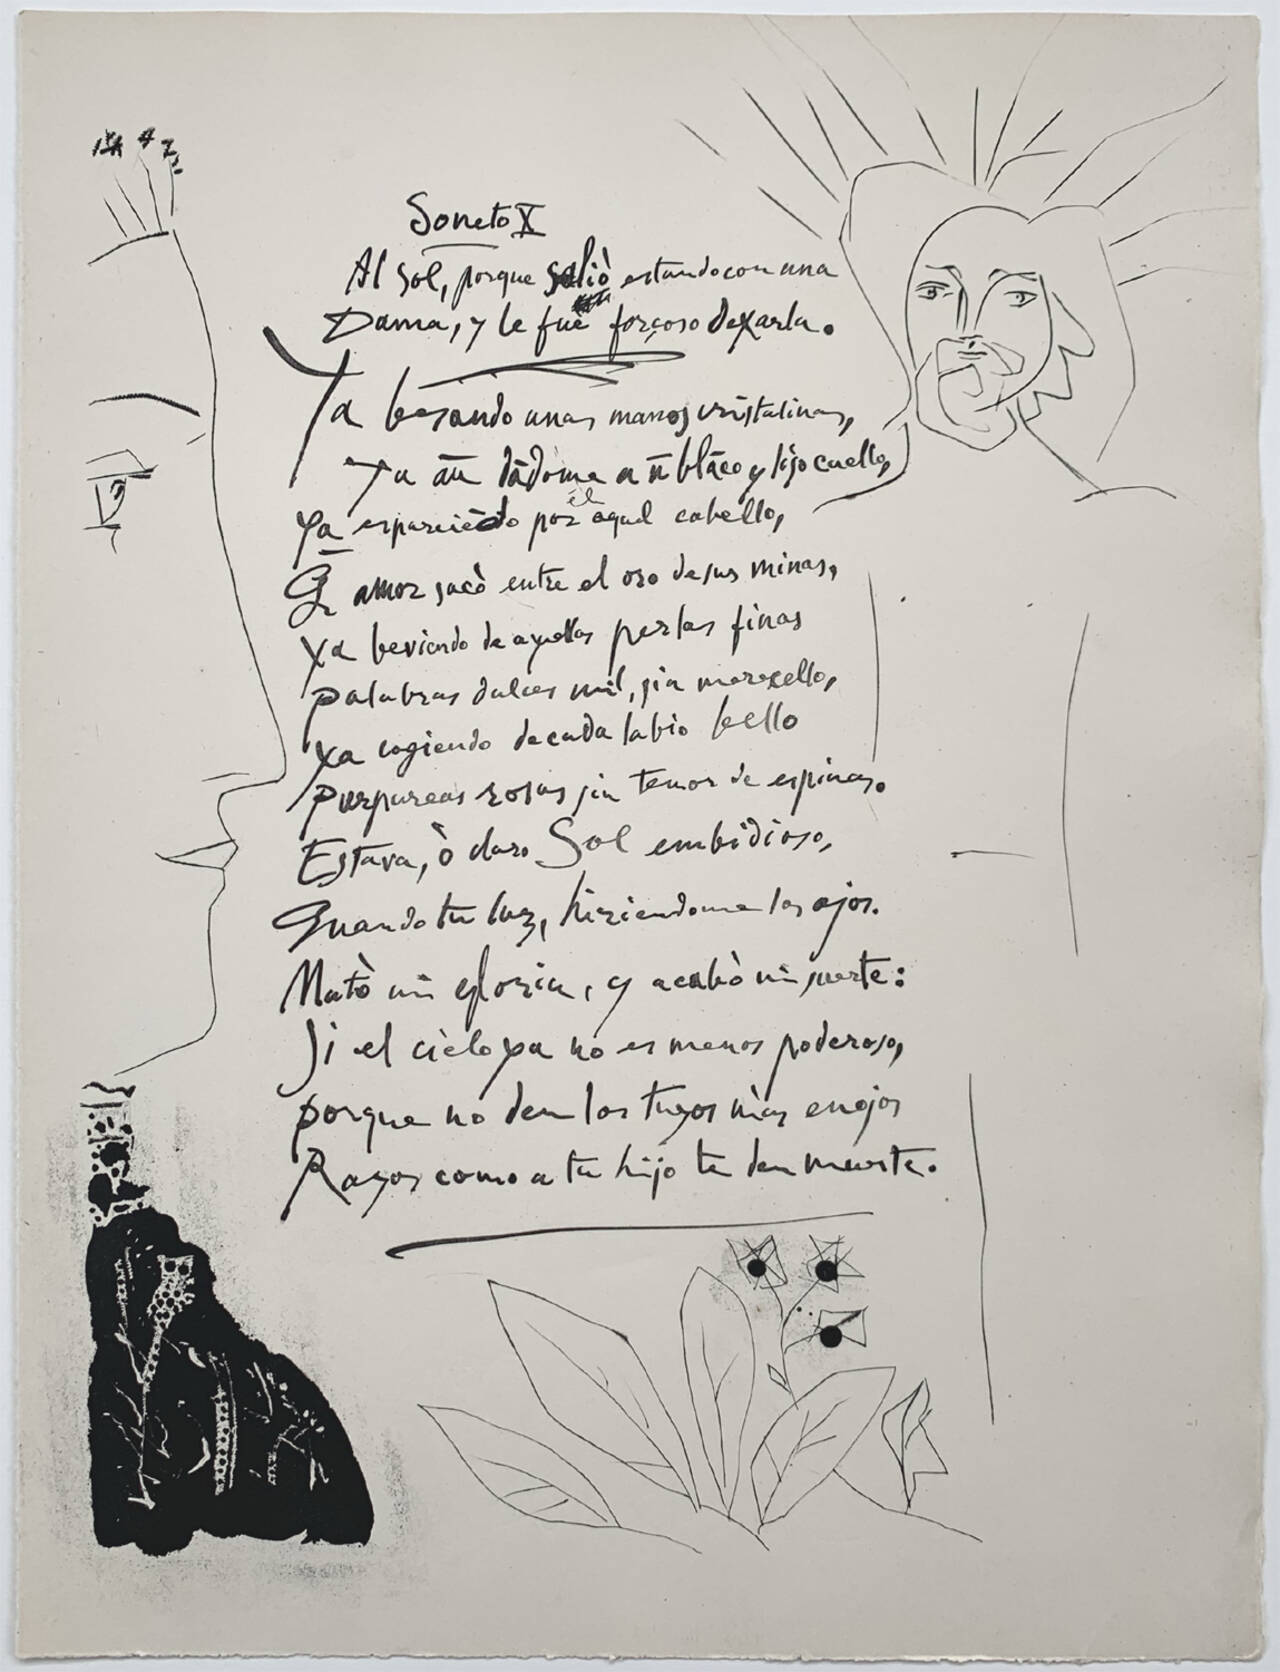 Soneto X
Al Sol, porque saliò estando con una
Dama, y le fue forçoso dexarla.
Ya besando unas manos cristalinas,
Ya añudādome a ū blāco y liso cuello,
Ya esparciēdo por él aquel cabello,
Q̄ amor sacò entre el oro de sus minas,
Ya beviendo de aquellas perlas finas
palabras dulces mil, sin merecello,
Ya cogiendo de cada labio bello
purpureas rosas sin temor de espinas.
Estava, ò claro Sol embidioso,
Quando tu luz, hiriendome los ojos.
Matò mi gloria, y acabò mi suerte:
Si el cielo ya no es menos poderoso,
porque no den los tuyos màs enojos
Rayos como a tu hijo te den muerte.